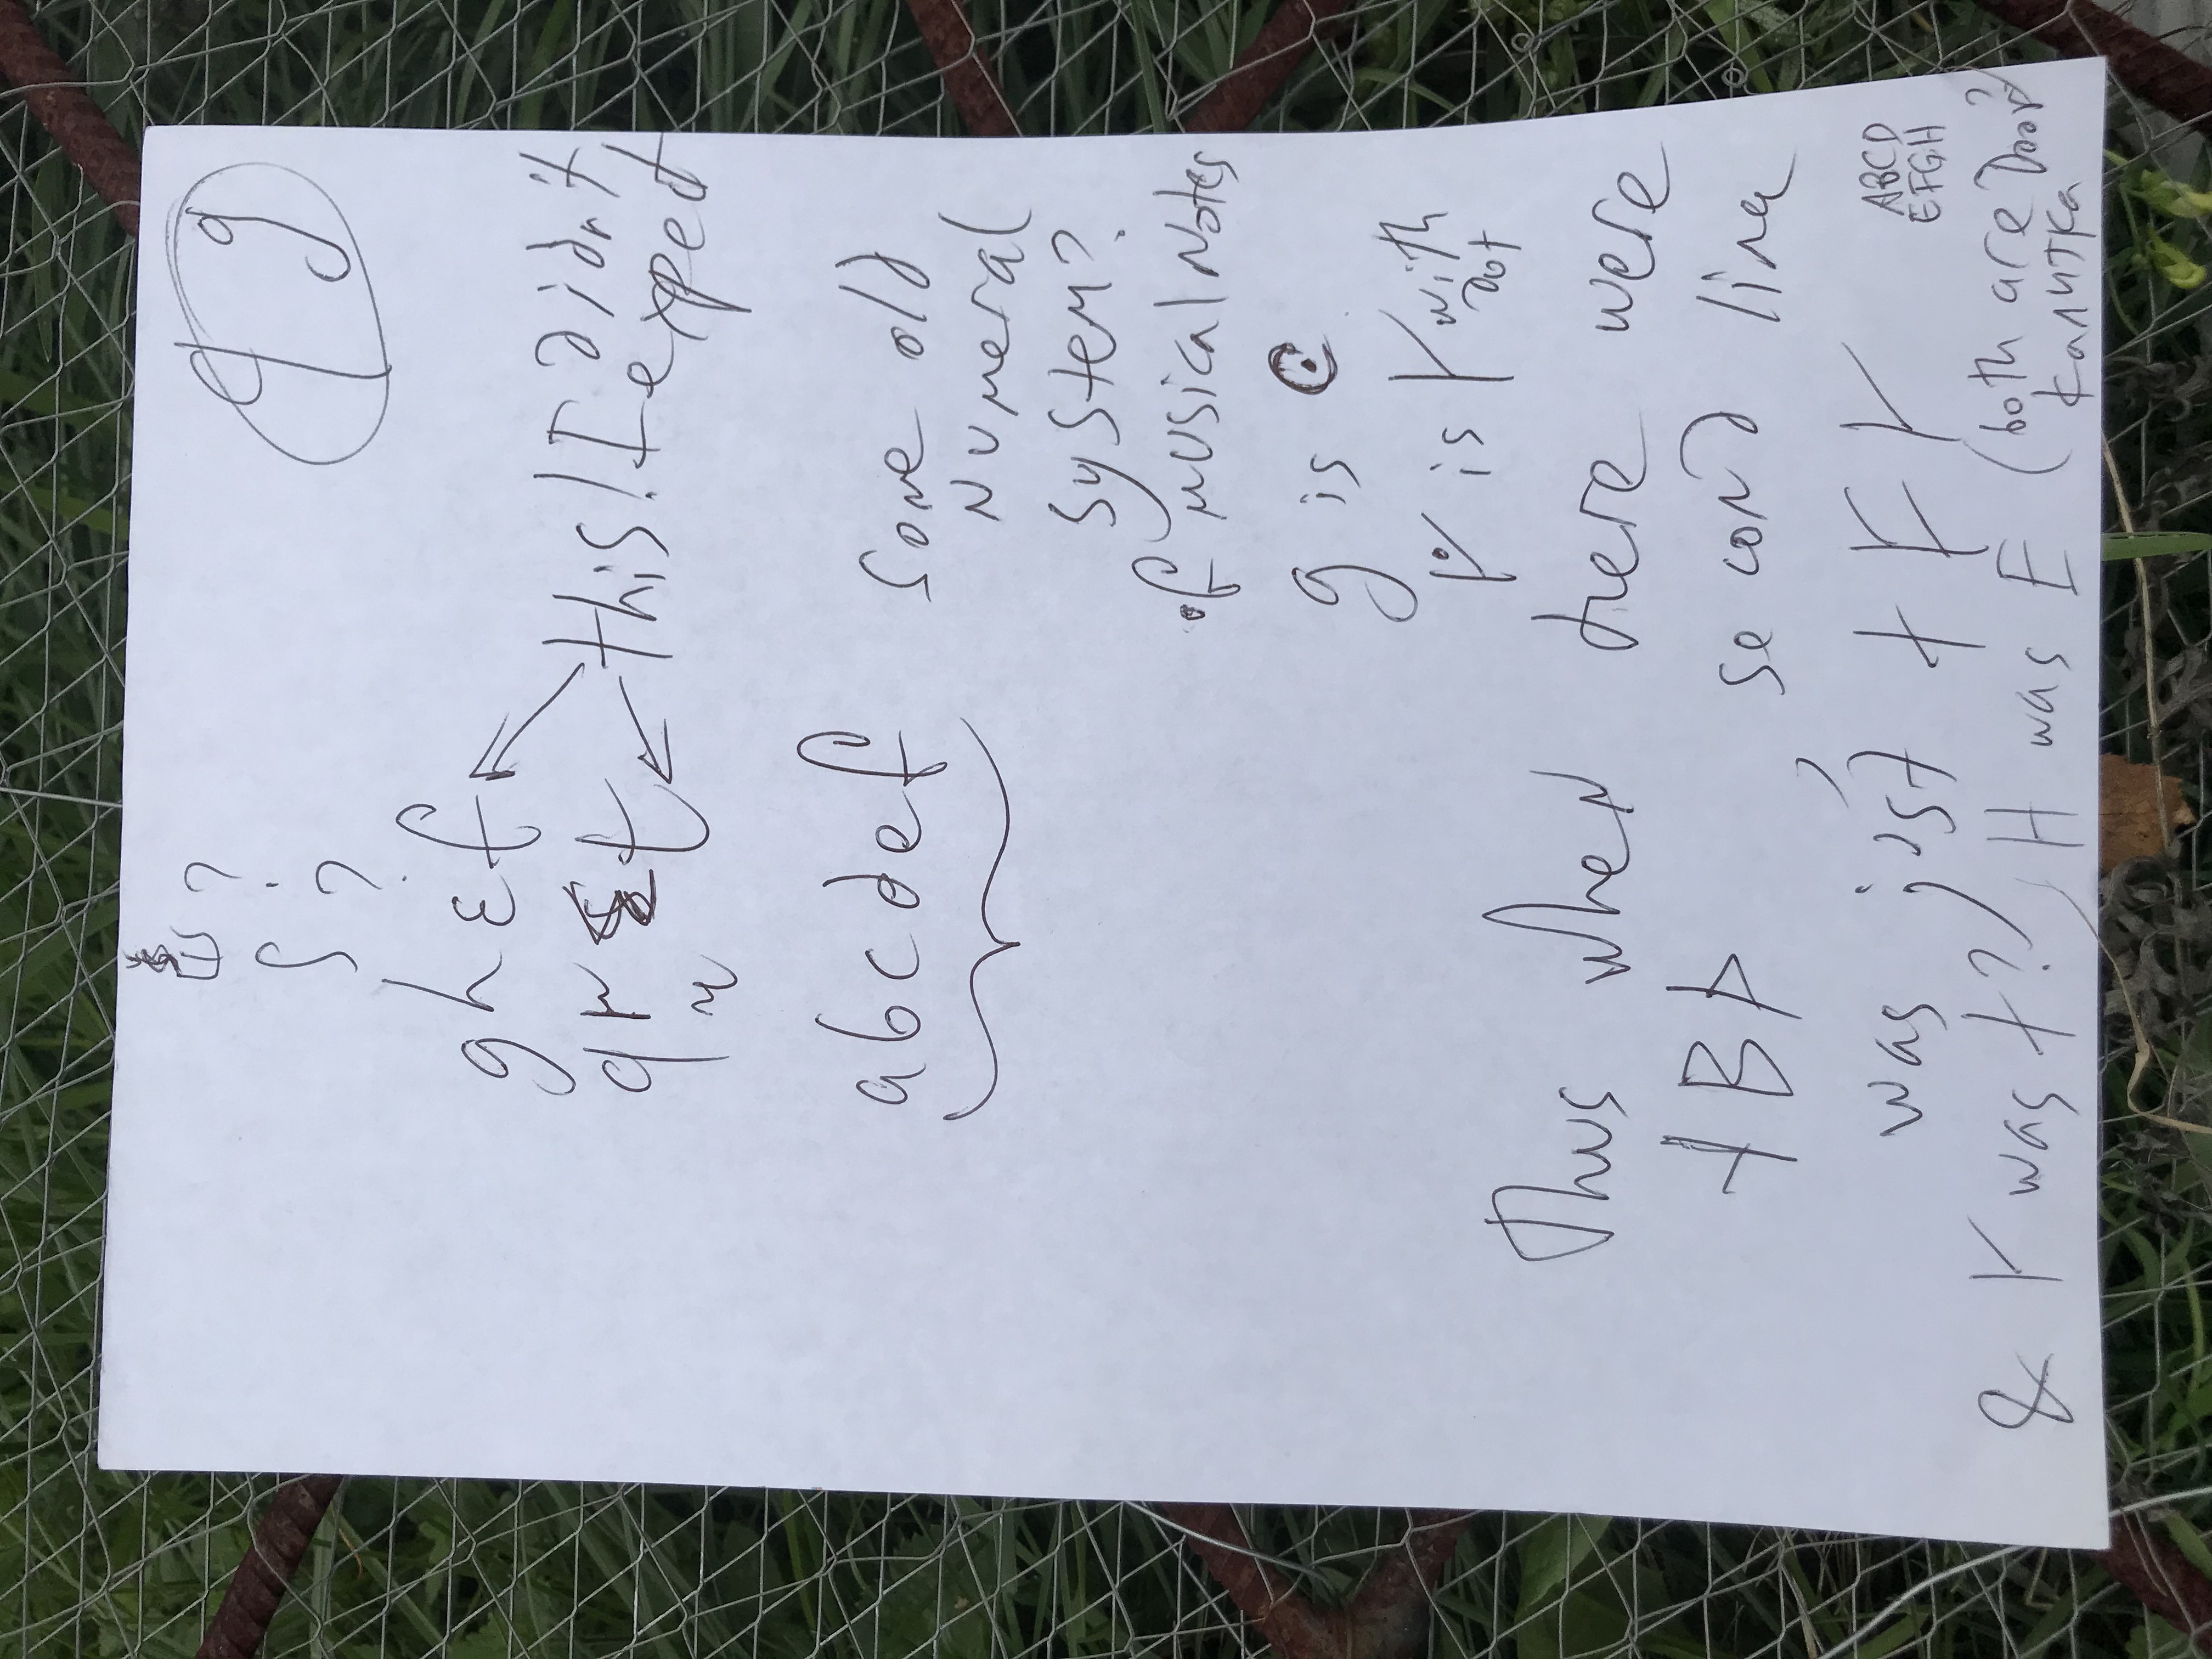 ?
q g
ʃ ?
g h ε f
q r t
this! I didn't expect
r
a b c d e f
some old
numeral
system?
of musical notes
g is C
is Y with dot
Thus when there were
B Þ , second line
was just + F Y
ABCD
EFGH
& Y was t? H was E (both are Door?
калитка